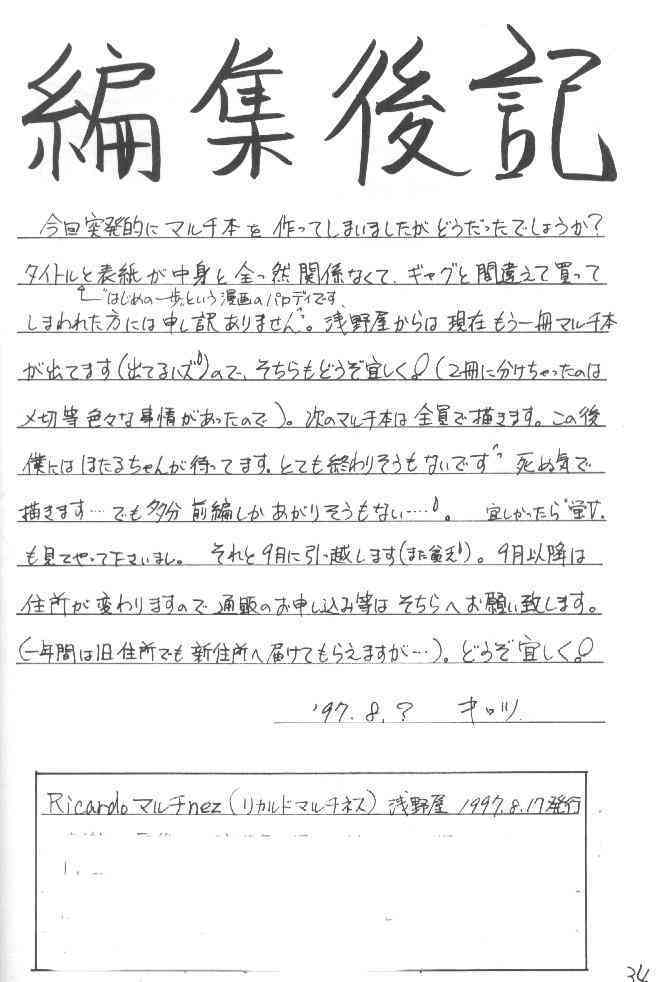 編集後記
今回突発的にマルチ本を作ってしまいましたがどうだったでしょうか?
タイトルと表紙が中身と全っ然関係なくて、ギャグと間違えて買って
"はじめの一歩"という漫画のパロディです。
しまわれた方には申し訳ありません^^。浅野屋からは現在もう一冊マルチ本
が出てます(出てるハズ!)ので、そちらもどうぞ宜しく!(2冊に分けちゃったのは
〆切等色々な事情があったので)。次のマルチ本は全員で描きます。この後
僕にはほたるちゃんが待ってます。とても終わりそうもないです^^ 死ぬ気で
描きます…でも多分前編しかあがりそうもない……!。 宜しかったら"蛍"
も見てやって下さいまし。 それと9月に引っ越します(また貧乏!)。9月以降は
住所が変わりますので通販のお申し込み等はそちらへお願い致します。
(一年間は旧住所でも新住所へ届けてもらえますが…)。どうぞ宜しく!
'97.8.? キロツ
Ricardoマルチnez(リカルドマルチネス) 浅野屋 1997.8.17発行
34